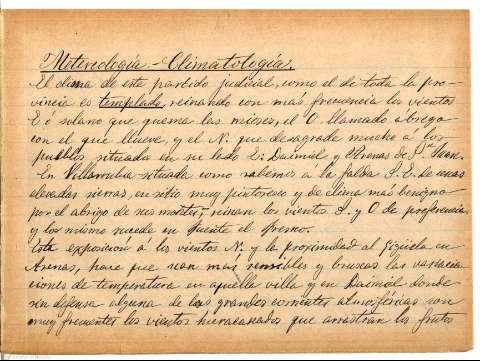 Metereología.- Climatología.
El clima de este partido judicial, como el de toda la pro-
vincia es templado, reinando con mas frecuencia los vientos
E ó solano que quema las mieses, el O llamado abrego
con el que llueve, y el N. que desagrada mucho á los
pueblos situada en su lado L: Daimiel y Arenas de Sn Juan.
En Villarrubia situada como sabemos a la falda S. E. de unas
elevadas sierras, en sitio muy pintoresco y de clima mas benigno
por el abrigo de sus montes, reinan los vientos S. y O de preferencia
y los mismo sucede en Fuente el Fresno.
Esta exposición á los vientos N. y la proximidad al Gigüela en
Arenas, hace que sean más sensibles y bruscas las variacia
ciones de temperatura en aquella villa y en Daimiel donde
sin defensa alguna de las grandes corrientes atmosféricas son
muy frecuentes los vientos huracanados que arrastran los frutos